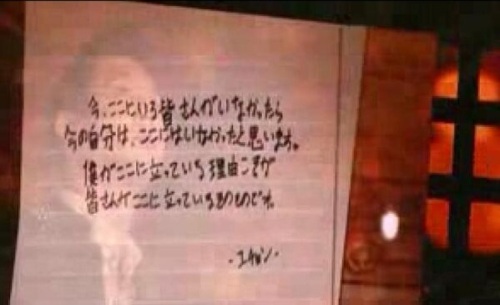 今、ここにいる皆さんがいなかったら
今の自分は、ここにはいなかったと思います。
僕がここに立っている理由こそが
皆さんがここに立っているそのものです。